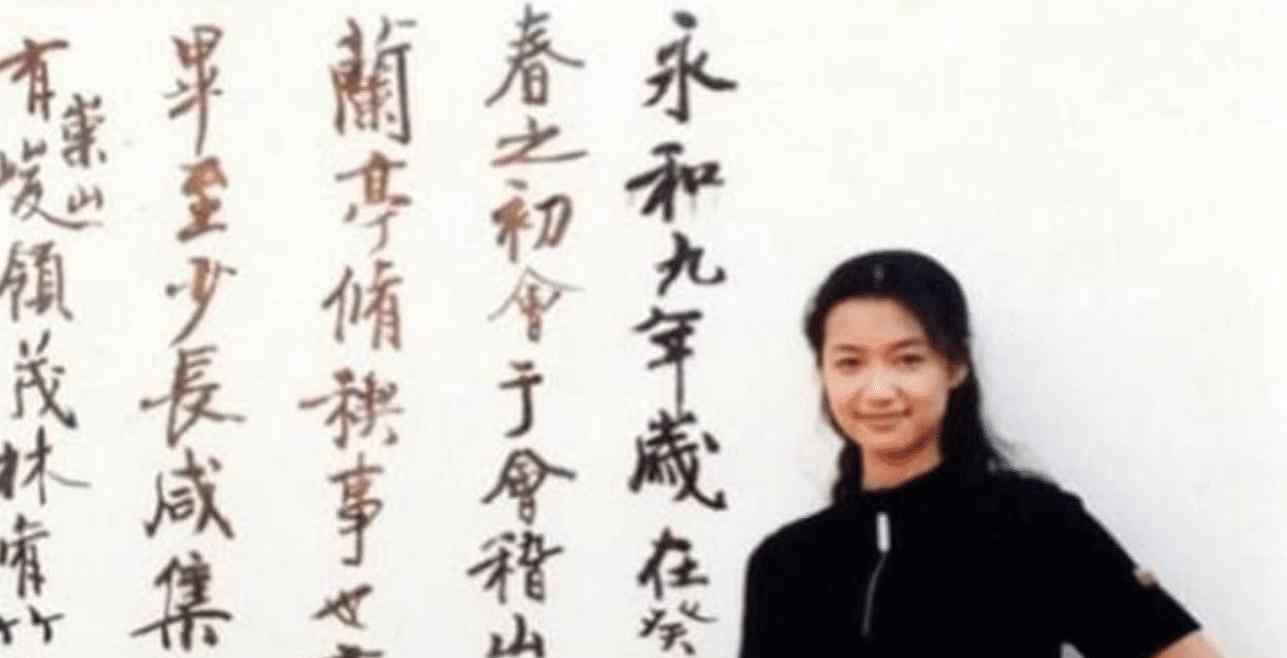 永和九年歲在癸
春之初會于會稽山
蘭亭脩禊事也
畢至少長咸集
有崇山峻領茂林脩竹